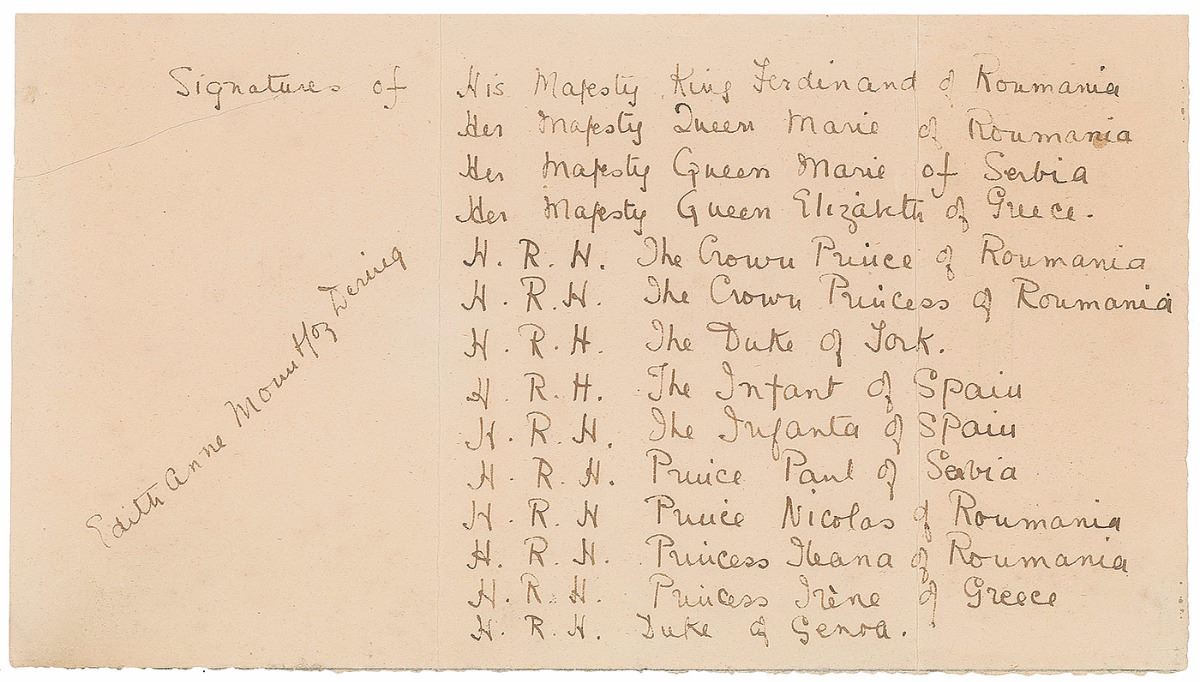 Signatures of His Majesty King Ferdinand of Roumania
Her Majesty Queen Marie of Roumania
Her Majesty Queen Marie of Serbia
Her Majesty Queen Elizabeth of Greece.
H. R. H. The Crown Prince of Roumania
H. R. H. The Crown Princess of Roumania
H. R. H. The Duke of York.
H. R. H. The Infant of Spain
H. R. H. The Infanta of Spain
H. R. H. Prince Paul of Serbia
H. R. H Prince Nicolas of Roumania
H. R. H. Princess Ileana of Roumania
H. R. H. Princess Irène of Greece
H. R. H. Duke of Genoa.
Edith Anne Dering